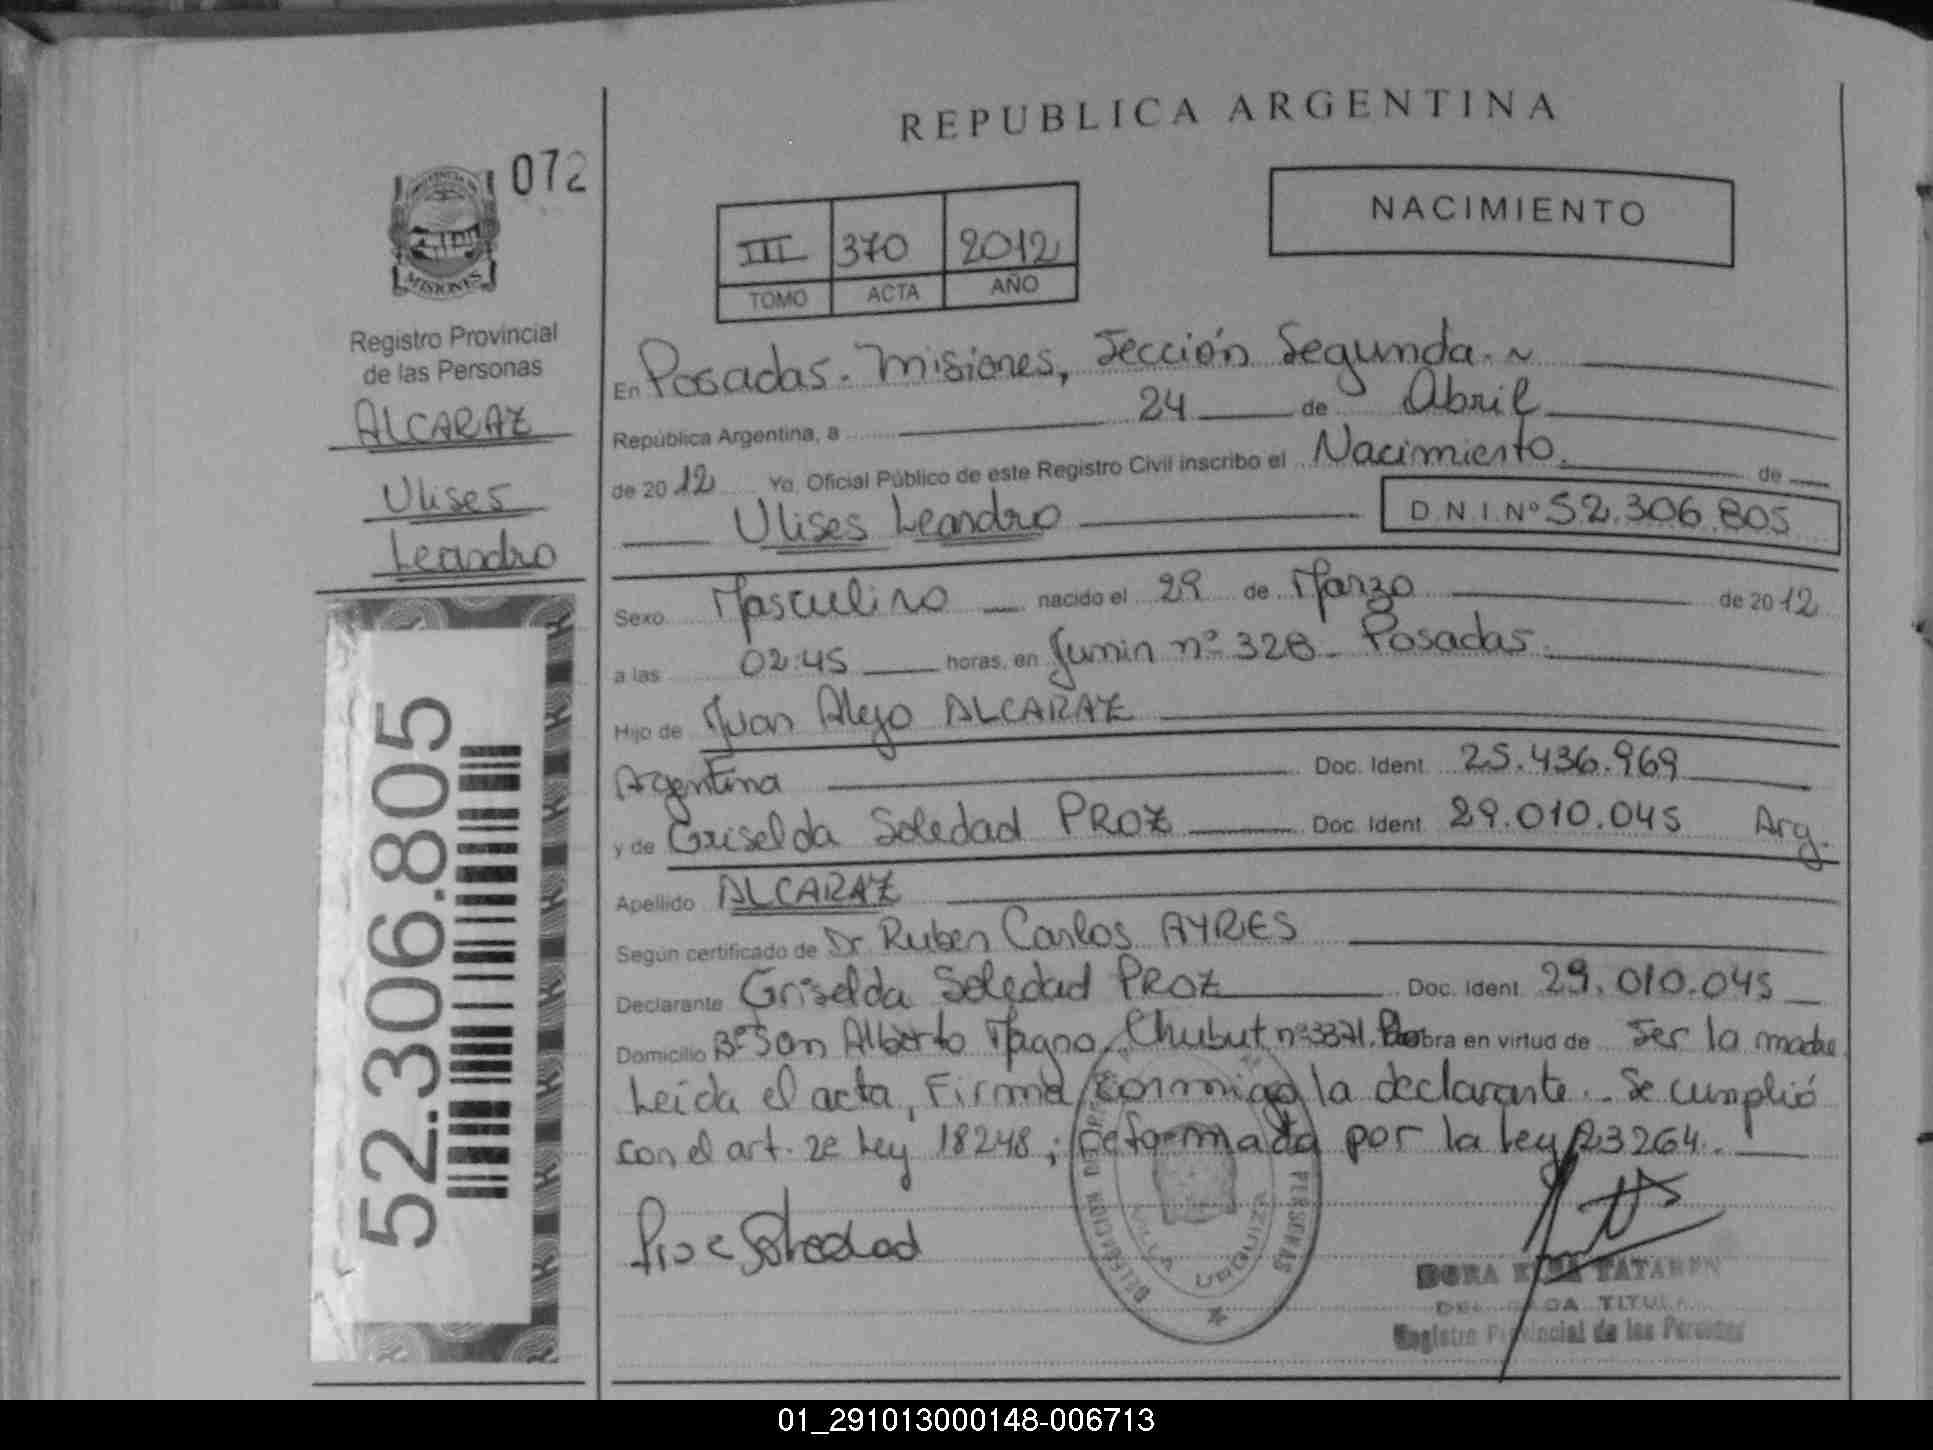 REPUBLICA ARGENTINA
072
NACIMIENTO
III 370 2012
TOMO ACTA AÑO
MISIONES
Registro Provincial
de las Personas
ALCARAZ
Ulises
Leandro
52.306.805
En Posadas. Misiones, Sección Segunda.
República Argentina, a 24 de Abril
de 2012 Yo, Oficial Público de este Registro Civil inscribo el Nacimiento. de
Ulises Leandro D.N.I.Nº 52.306.805
Sexo Masculino nacido el 29 de Marzo de 2012
a las 02:45 horas, en Junin nº 328. Posadas.
Hijo de Juan Alejo ALCARAZ
Argentina Doc. Ident. 25.436.969
y de Griselda Soledad PROZ Doc. Ident. 29.010.045 Arg.
Apellido ALCARAZ
Según certificado de Dr Ruben Carlos AYRES
Declarante Griselda Soledad PROZ Doc. Ident. 29.010.045
Domicilio Bº San Alberto Magno, Chubut nº 3371. obra en virtud de Ser la madre
Leída el acta, Firma conmigo la declarante. Se cumplió
con el art. 2e Ley 18248; reformada por la Ley 23264.
Soledad
DELEGACION PERSONAS
VILLA URQUIZA
DORA
TITULAR
Registro Provincial de las Personas
01_291013000148-006713